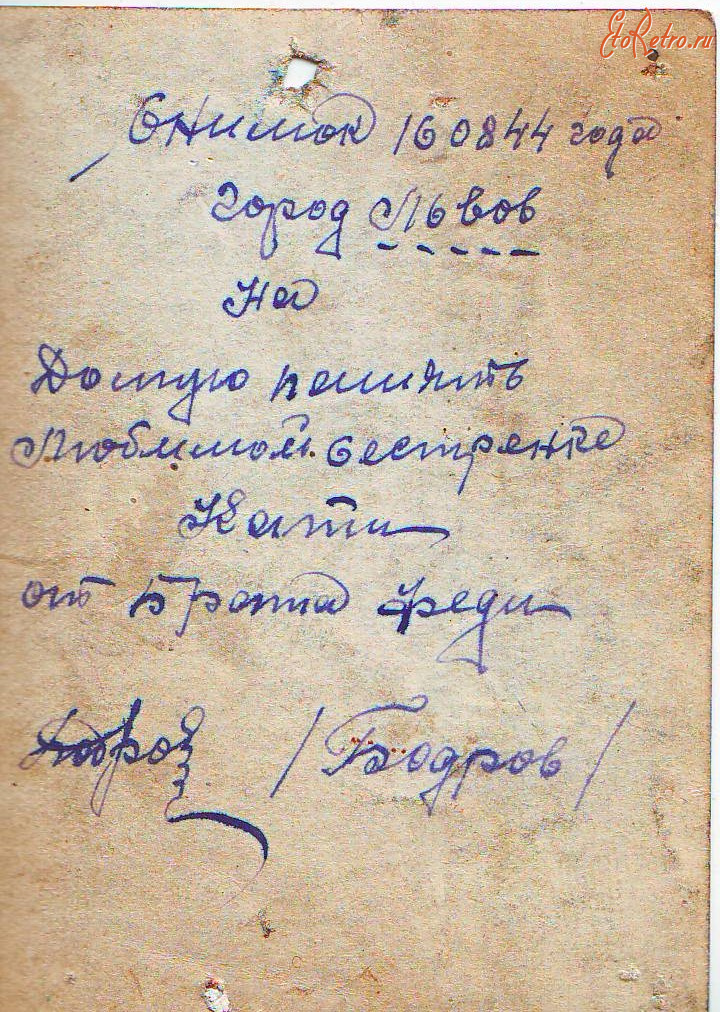 EtoRetro.ru
Снимок 160844 года
город Львов
На
Долгую память
Любимой сестренке
Кати
от Брата Феди
/Бодров/